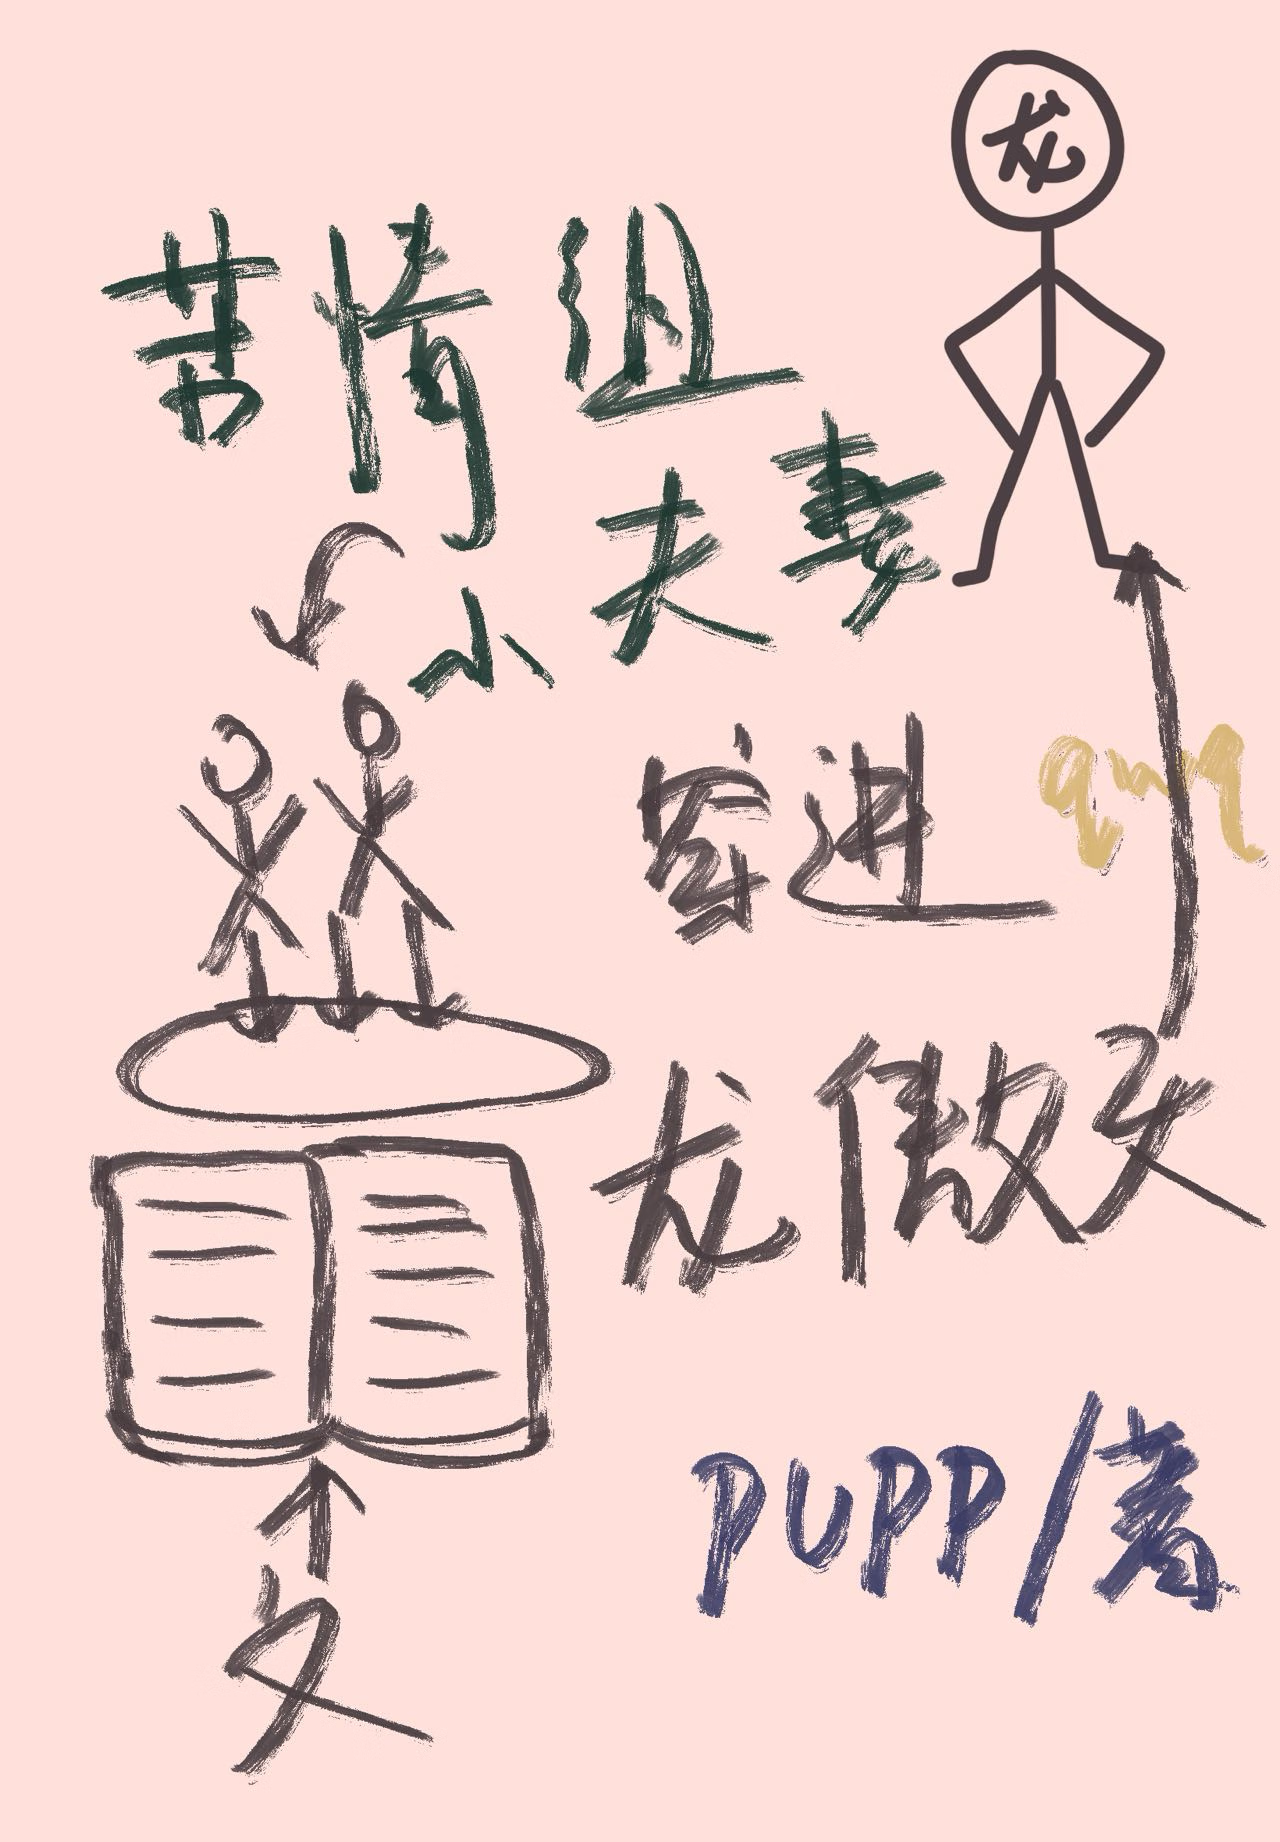 龙
苦情组
小夫妻
穿进
qwq
龙傲天
PUPP/著
文